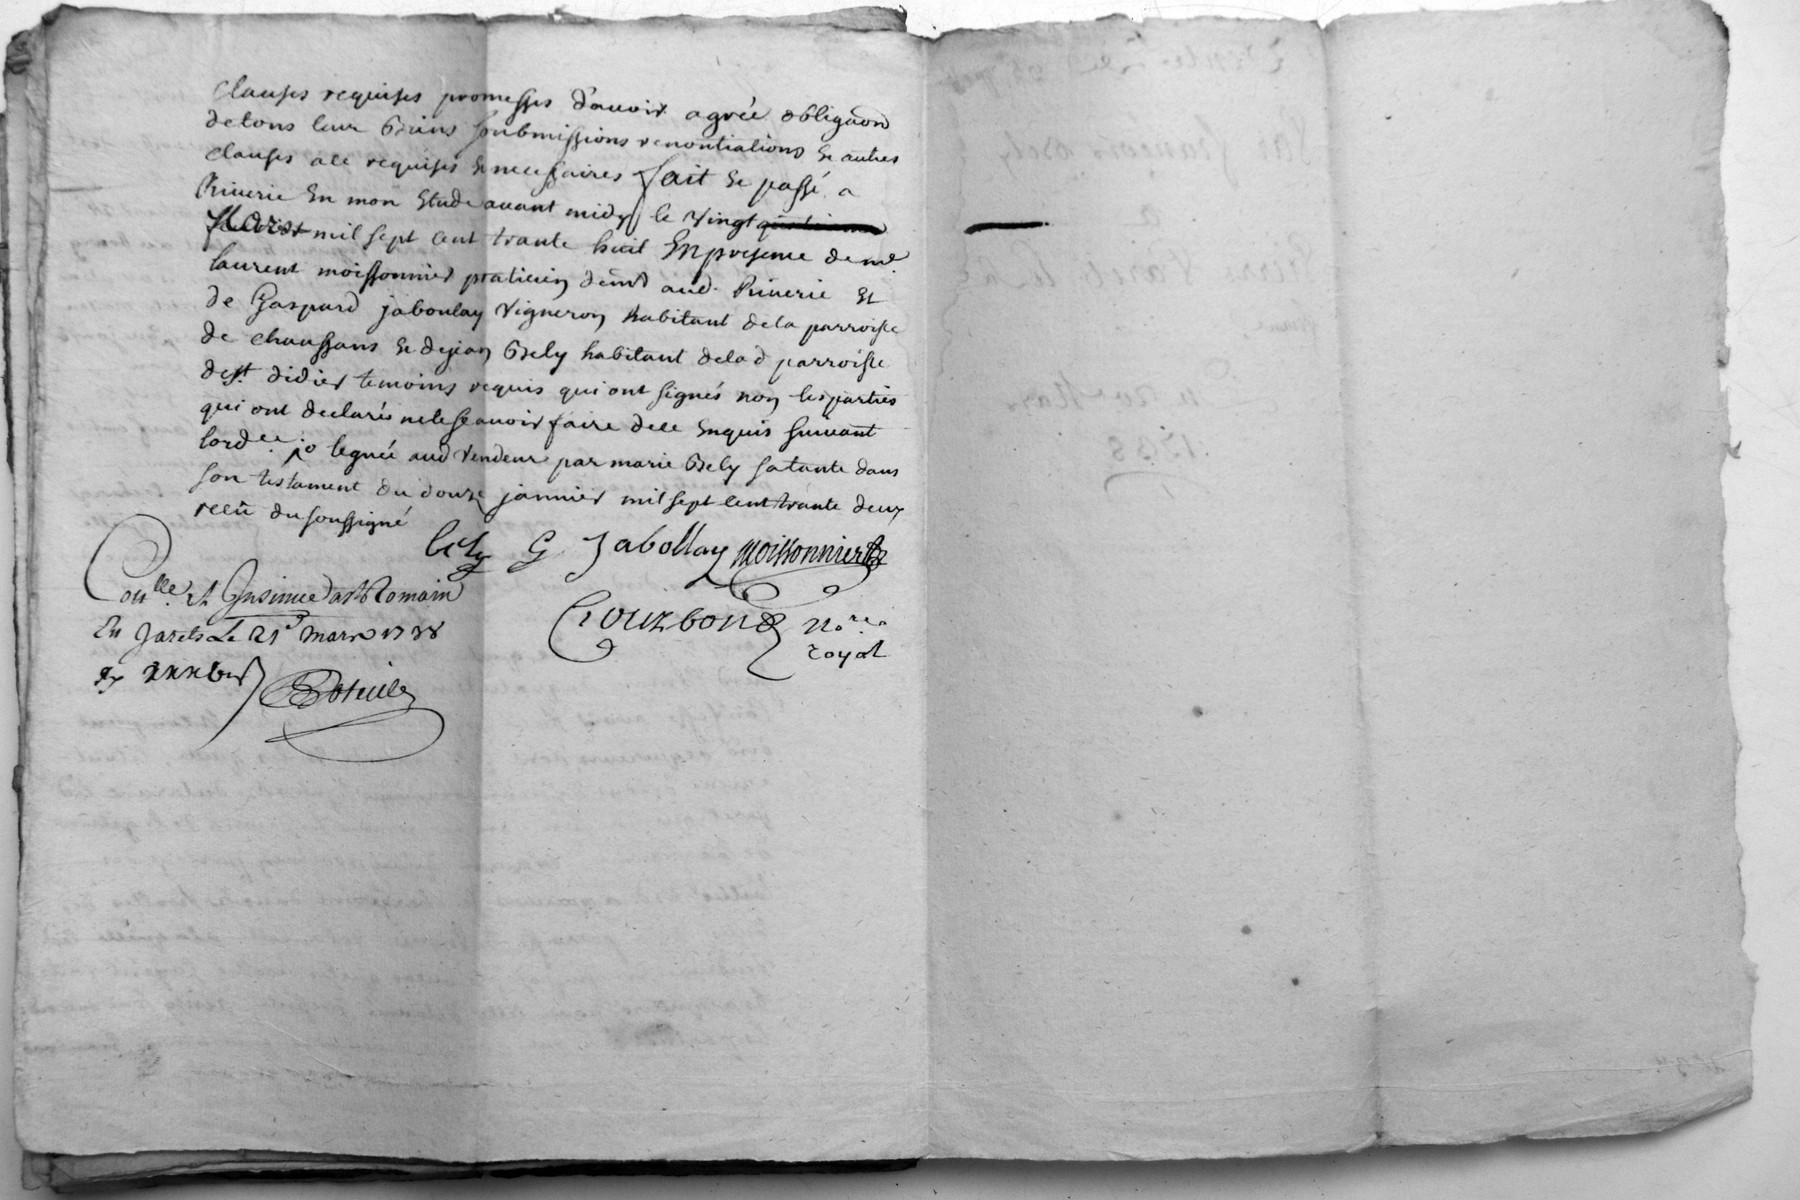 clauses requises promesses d'auoir agreé obligaon
de tous leur biens soubmissions renontiations et autres
clauses a ce requises et necessaires fait et passé a
Riuerie En mon Etude auant midy le vingt
Mars mil sept cent trante huit En presence de me.
laurent moissonnier praticien demt aud. Riuerie et
de Gaspard jaboulay vigneron habitant de la parroisse
de chaussans et de jean Bely habitant de lad parroisse
de st. didier temoins requis qui ont signés non les parties
qui ont declarés ne le sçauoir faire de ce Enquis suiuant
lord.ce jo leguée aud vendeur par marie Bely sa tante dans
son testament du douze januier mil sept cent trante deux
reçû du soussigné
bely G Jabollay Moissonnier
Conlle. et Insinué a st Romain
En Jarets Le 21e mars 1738
Crouzbond No.re
royal